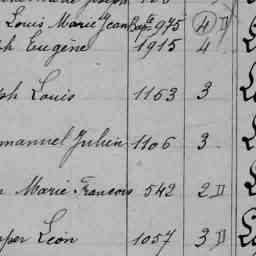 Louis Marie Jean Bapte 975 4 II
ph Eugène 1915 4
ph Louis 1153 3
manuel Julien 1106 3
Marie François 542 2 II
per Léon 1057 3 II